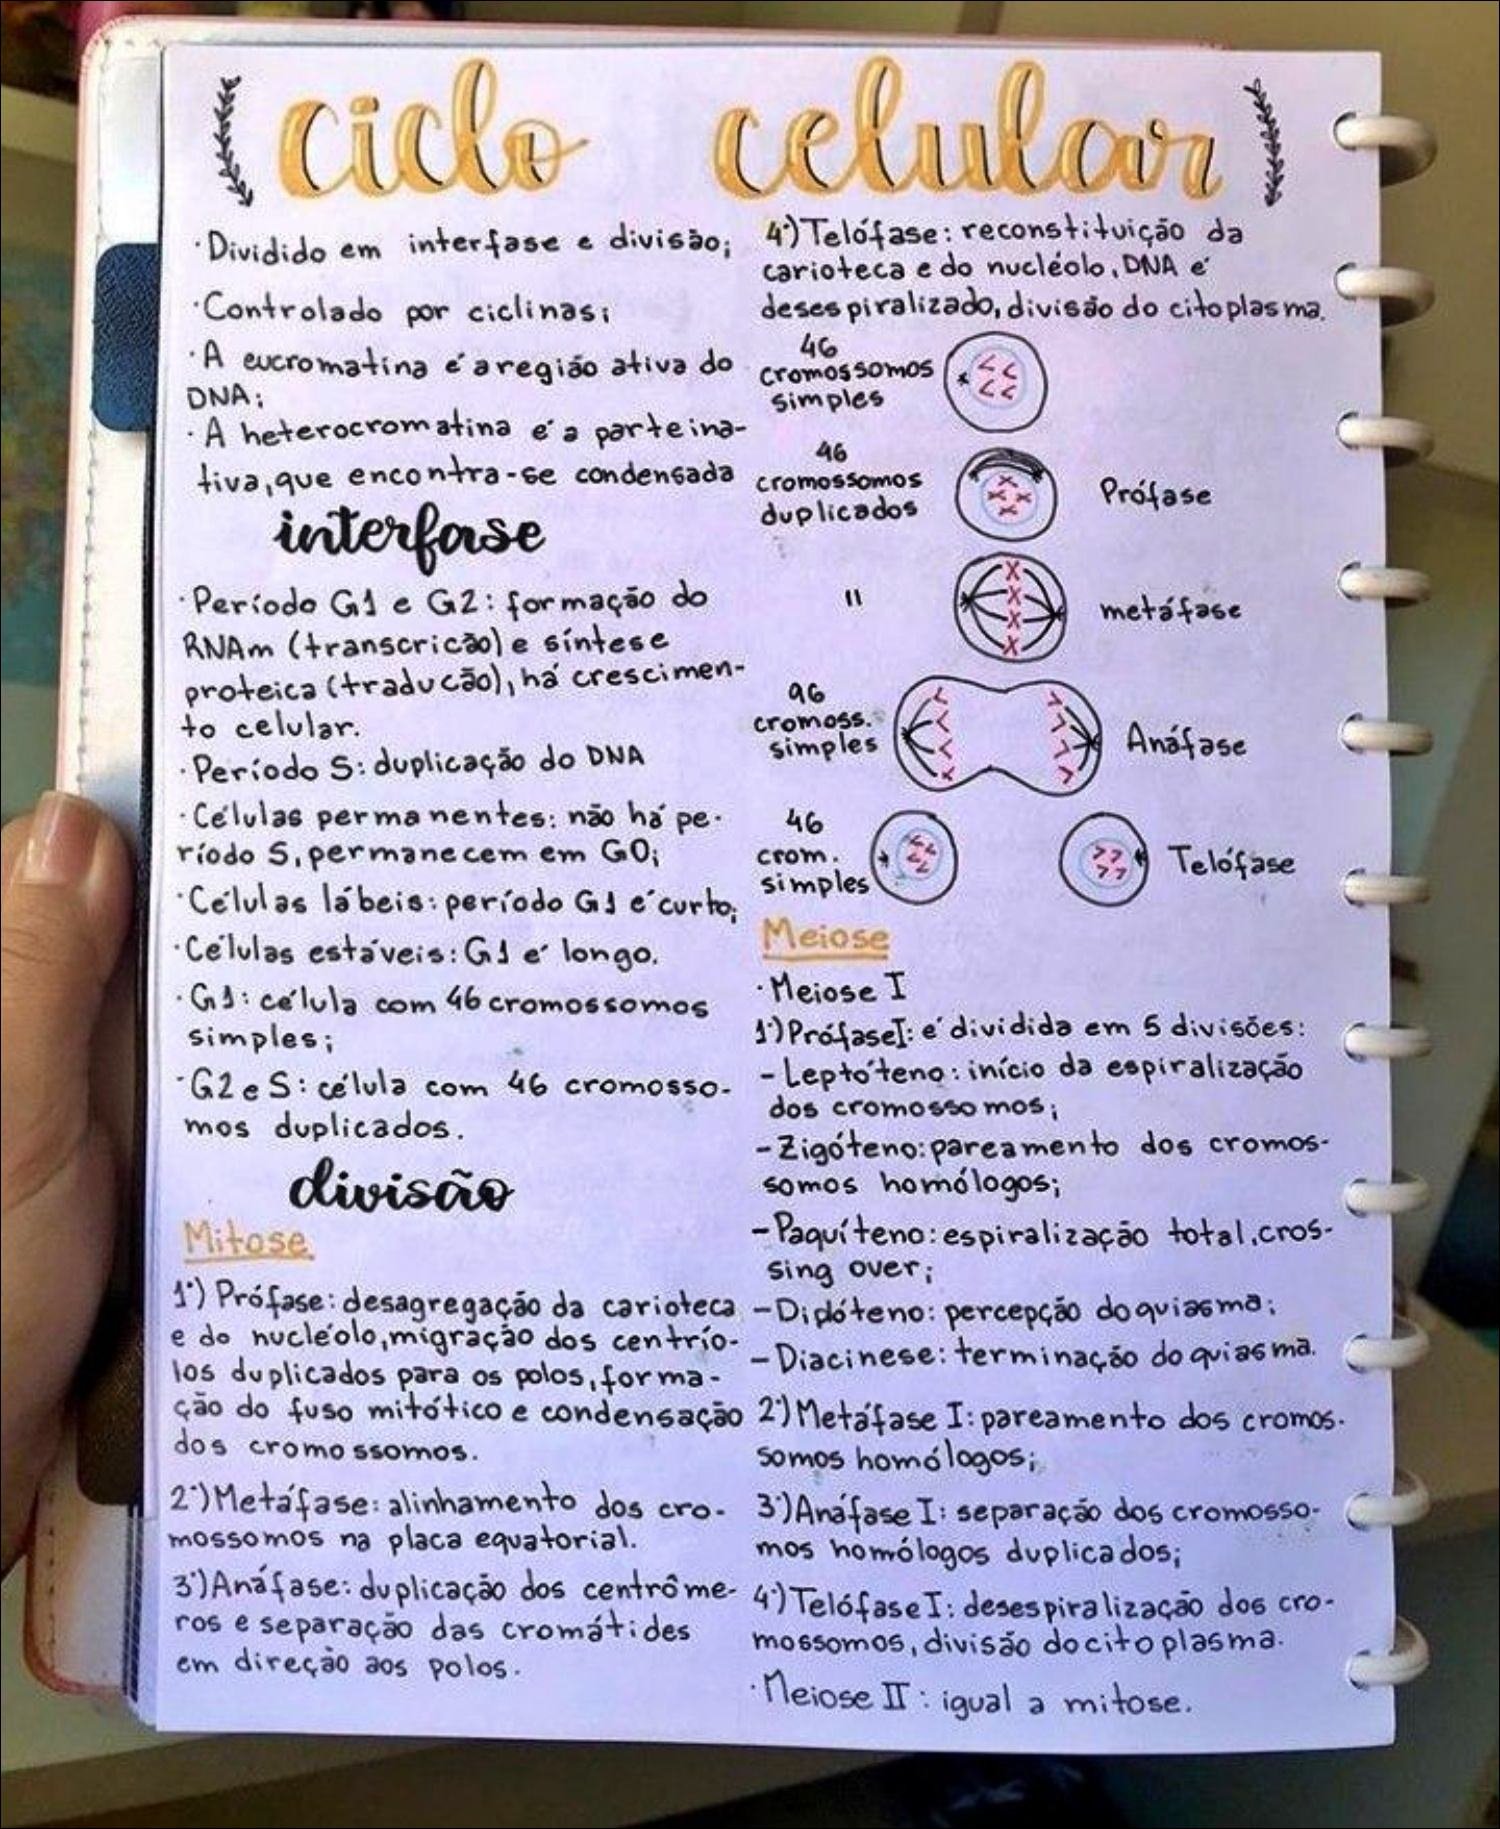 ciclo celular
· Dividido em interfase e divisão;
· Controlado por ciclinas;
· A eucromatina é a região ativa do
DNA;
· A heterocromatina é a parte ina-
tiva, que encontra-se condensada
interfase
· Período G1 e G2: formação do
RNAm (transcricão) e síntese
proteica (traducão), há crescimen-
to celular.
· Período S: duplicação do DNA
· Células permanentes: não há pe-
ríodo S, permanecem em G0;
· Células lábeis: período G1 é curto;
· Células estáveis: G1 é longo.
· G1: célula com 46 cromossomos
simples;
· G2 e S: célula com 46 cromosso-
mos duplicados.
divisão
Mitose
1º) Prófase: desagregação da carioteca
e do nucléolo, migração dos centrío-
los duplicados para os polos, forma-
ção do fuso mitótico e condensação
dos cromossomos.
2º) Metáfase: alinhamento dos cro-
mossomos na placa equatorial.
3º) Anáfase: duplicação dos centrôme-
ros e separação das cromátides
em direção aos polos.
4º) Telófase: reconstituição da
carioteca e do nucléolo, DNA é
desespiralizado, divisão do citoplasma.
46
cromossomos
simples
46
cromossomos
duplicados
Prófase
"
metáfase
96
cromoss.
simples
Anáfase
46
crom.
simples
Telófase
Meiose
· Meiose I
1º) Prófase I: é dividida em 5 divisões:
- Leptóteno: início da espiralização
dos cromossomos;
- Zigóteno: pareamento dos cromos-
somos homólogos;
- Paquíteno: espiralização total, cros-
sing over;
- Diplóteno: percepção do quiasma;
- Diacinese: terminação do quiasma.
2º) Metáfase I: pareamento dos cromos-
somos homólogos;
3º) Anáfase I: separação dos cromosso-
mos homólogos duplicados;
4º) Telófase I: desespiralização dos cro-
mossomos, divisão do citoplasma.
· Meiose II: igual a mitose.